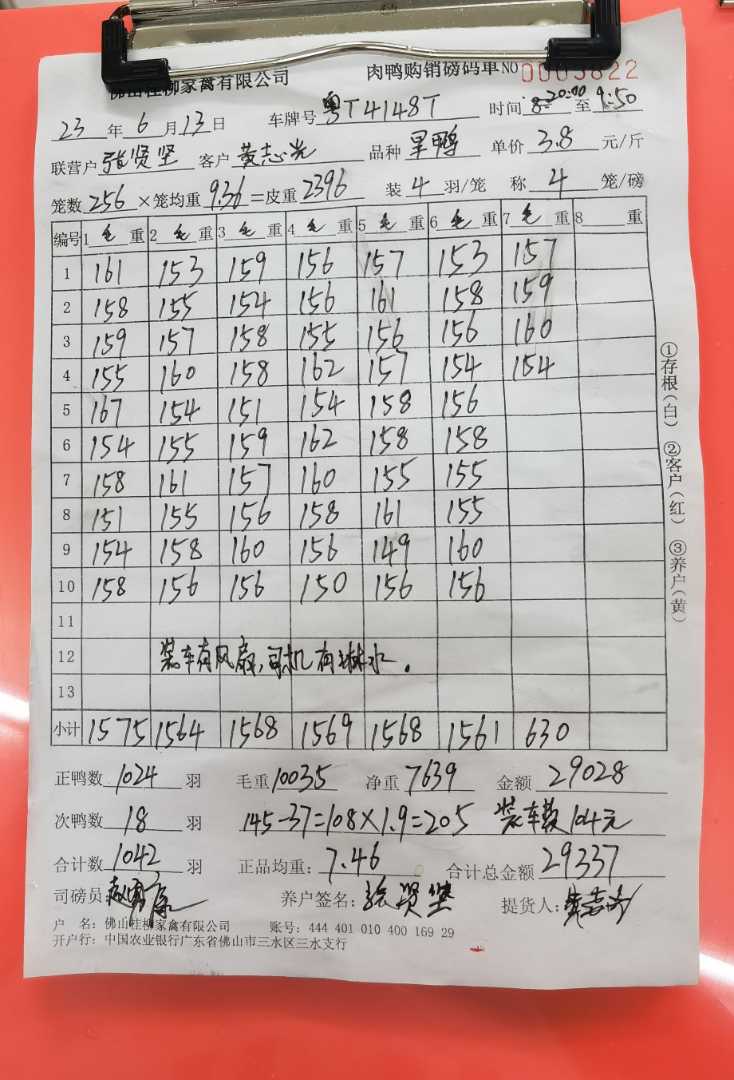 佛山桂柳家禽有限公司 肉鸭购销磅码单 NO 0005822
23年6月13日 车牌号 粤T4148T 时间 8:20:00 至 9:50
联营户 张贤坚 客户 黄志光 品种 单价 3.8 元/斤
笼数 256 ×笼均重 9.36 =皮重 2396 装 4 羽/笼 称 4 笼/磅
编号 1 毛 重 2 毛 重 3 毛 重 4 毛 重 5 毛 重 6 毛 重 7 毛 重 8 重
1 161 153 159 156 157 153 157
2 158 155 154 156 161 158 159
3 159 157 158 155 156 156 160
4 155 160 158 162 157 154 154
5 167 154 151 154 158 156
6 154 155 159 162 158 158
7 158 161 157 160 155 155
8 151 155 156 158 161 155
9 154 158 160 156 149 160
10 158 156 156 150 156 156
11
12 装车有风扇,司机有淋水.
13
小计 1575 1564 1568 1569 1568 1561 630
①存根(白) ②客户(红) ③养户(黄)
正鸭数 1024 羽 毛重 10035 净重 7639 金额 29028
次鸭数 18 羽 145-37=108×1.9=205 装车款 104元
合计数 1042 羽 正品均重: 7.46 合计总金额 29337
司磅员: 养户签名: 张贤坚 提货人: 黄志光
户 名: 佛山桂柳家禽有限公司 账号: 444 401 010 400 169 29
开户行: 中国农业银行广东省佛山市三水区三水支行